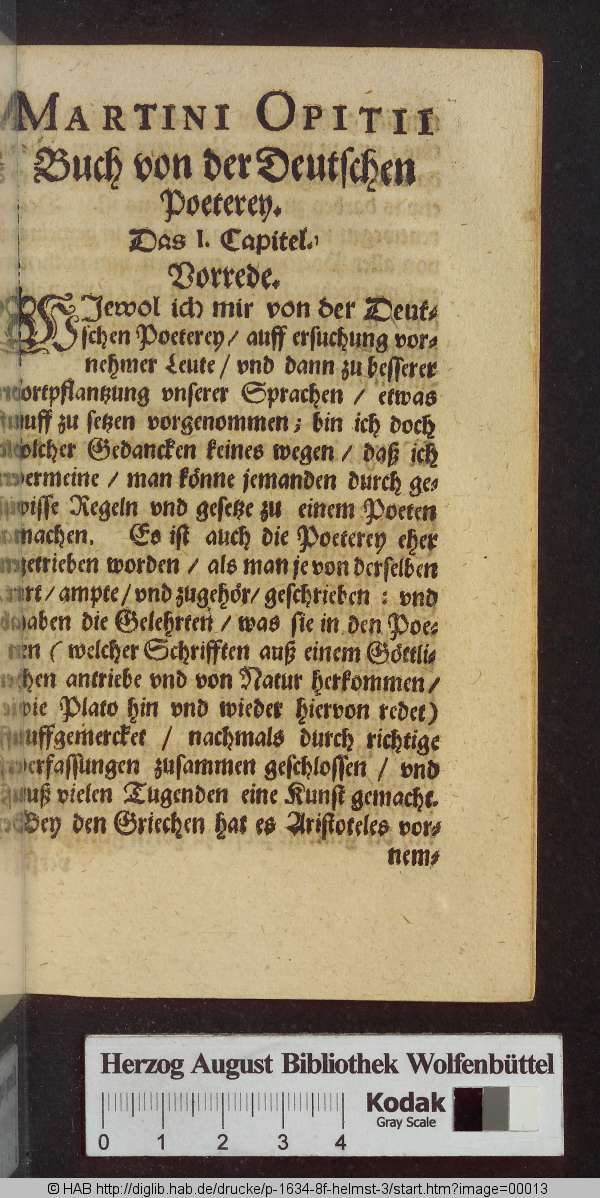 MARTINI OPITII
Buch von der Deutschen
Poeterey.
Das I. Capitel.
Vorrede.
WJewol ich mir von der Deut⸗
schen Poeterey / auff ersuchung vor⸗
nehmer Leute / vnd dann zu besserer
ortpflantzung vnserer Sprachen / etwas
uff zu setzen vorgenommen; bin ich doch
olcher Gedancken keines wegen / daß ich
vermeine / man könne jemanden durch ge⸗
wisse Regeln vnd gesetze zu einem Poeten
machen. Es ist auch die Poeterey eher
getrieben worden / als man je von derselben
art / ampte / vnd zugehör / geschrieben : vnd
haben die Gelehrten / was sie in den Poe⸗
en ( welcher Schrifften auß einem Göttli⸗
chen antriebe vnd von Natur herkommen /
wie Plato hin vnd wieder hiervon redet )
uffgemercket / nachmals durch richtige
verfassungen zusammen geschlossen / vnd
uß vielen Tugenden eine Kunst gemacht.
Bey den Griechen hat es Aristoteles vor⸗
nem⸗
Herzog August Bibliothek Wolfenbüttel
Kodak
Gray Scale
0 1 2 3 4
© HAB http://diglib.hab.de/drucke/p-1634-8f-helmst-3/start.htm?image=00013